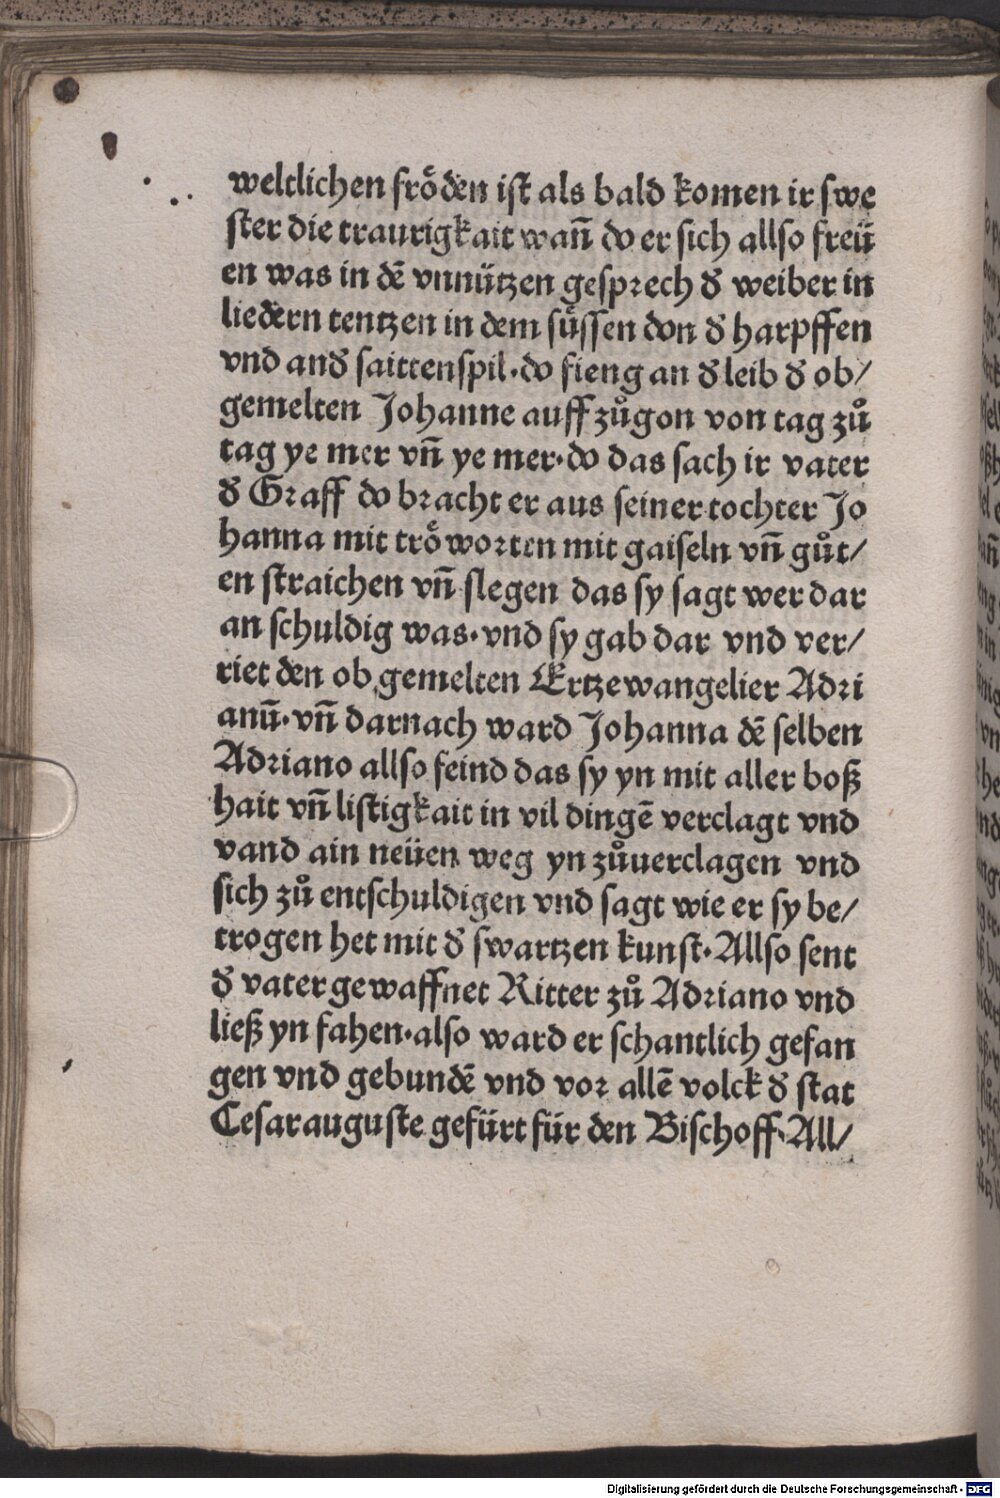 weltlichen frőden ist als bald komen ir swe
ster die traurigkait wañ do er sich allso freü
en was in dē vnnützen gesprech đ weiber in
liedern tentzen in dem süssen don đ harpffen
vnd anđ saittenspil·do fieng an đ leib đ ob/
gemelten Johanne auff zůgon von tag zů
tag ye mer vñ ye mer·do das sach ir vater
đ Graff do bracht er aus seiner tochter Jo
hanna mit trőworten mit gaiseln vñ gůt/
en straichen vñ slegen das sy sagt wer dar
an schuldig was·vnd sy gab dar vnd ver/
riet den ob gemelten Ertzewangelier Adri
anū·vñ darnach ward Johanna dē selben
Adriano allso feind das sy yn mit aller boß
hait vñ listigkait in vil dingē verclagt vnd
vand ain neüen weg yn zůuerclagen vnd
sich zů entschuldigen vnd sagt wie er sy be/
trogen het mit đ swartzen kunst·Allso sent
đ vater gewaffnet Ritter zů Adriano vnd
ließ yn fahen·also ward er schantlich gefan
gen vnd gebundē vnd vor allē volck đ stat
Cesarauguste gefürt für den Bischoff·All/
Digitalisierung gefördert durch die Deutsche Forschungsgemeinschaft - DFG